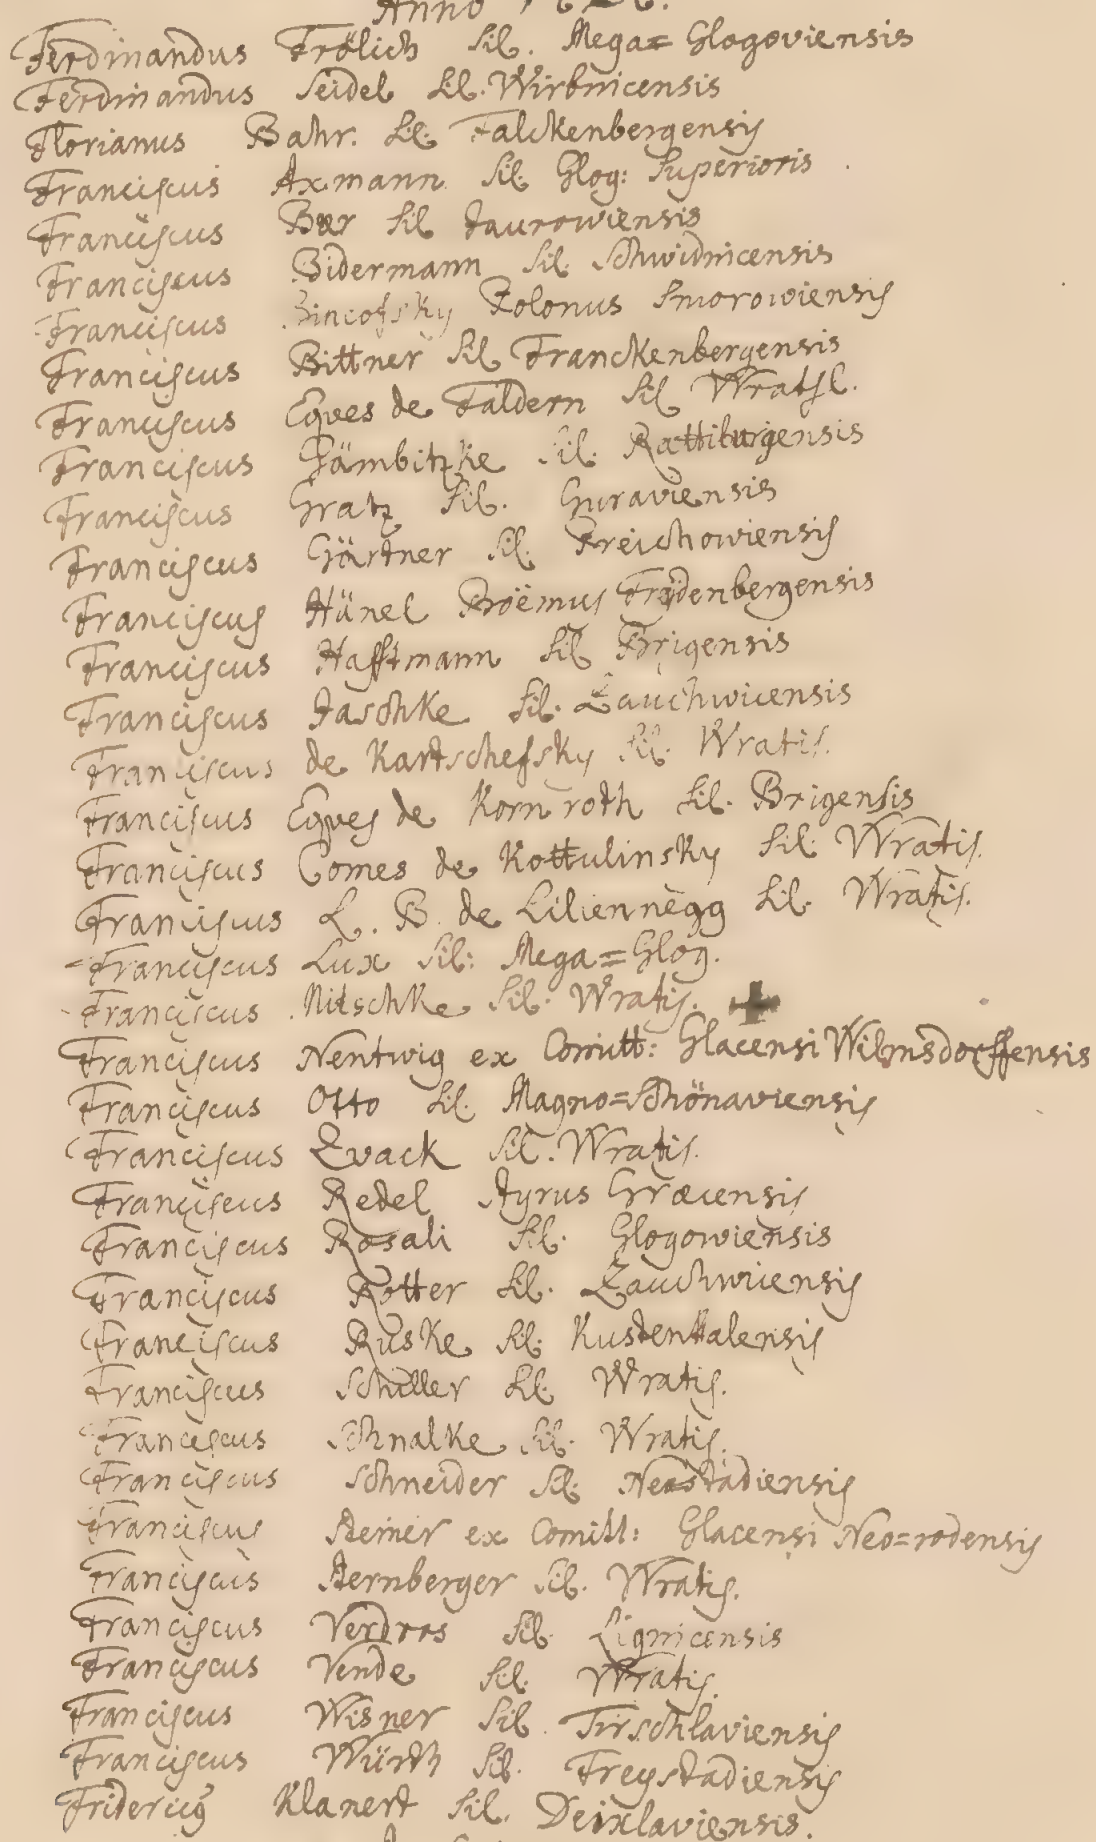 Anno
Ferdinandus Frölich Sil. Mega= Glogoviensis
Ferdinandus Seidel Sil. Wirbnicensis
Florianus Bahr. Sil. Falckenbergensis
Franciscus Axmann Sil. Glog: Superioris
Franciscus Baer Sil. Jaurowiensis
Franciscus Bidermann Sil. Schwidnicensis
Franciscus Polonus Smorowiensis
Franciscus Bittner Sil Franckenbergensis
Franciscus Eques de Faldern Sil Wratsl.
Franciscus Gämbitzke Sil. Rattiburgensis
Franciscus Gratz Sil. Guraviensis
Franciscus Gärtner Sil. Preichowiensis
Franciscus Hänel Boëmus Frydenbergensis
Franciscus Hafftmann Sil Brigensis
Franciscus Jaschke Sil. Zauchwicensis
Franciscus de Kartschefsky Sil. Wratis.
Franciscus Eques de Kornroth Sil. Brigensis
Franciscus Comes de Kottulinsky Sil. Wratis.
Franciscus L. B. de Liliennegg Sil. Wratis.
Franciscus Lux Sil: Mega=Glog.
Franciscus Nitschke Sil. Wratis.
Franciscus Nentwig ex Comitt: Glacensi Wilmsdorffensis
Franciscus Otto Sil. Magno=Schönaviensis
Franciscus Qvack Sil. Wratis.
Franciscus Redel Styrus Græcensis
Franciscus Rosali Sil. Glogowiensis
Franciscus Rotter Sil. Zauchwicensis
Franciscus Ruske Sil. Kustenthalensis
Franciscus Schiller Sil. Wratis.
Franciscus Schnalke Sil. Wratis.
Franciscus Schneider Sil. Neostadiensis
Franciscus Steiner ex Comitt: Glacensi Neo=rodensis
Franciscus Sternberger Sil. Wratis.
Franciscus Verdros Sil. Lignicensis
Franciscus Vende Sil. Wratis.
Franciscus Wisner Sil. Tirschlaviensis
Franciscus Würth Sil. Freystadiensis
Fridericus Klanert Sil. Deixlaviensis.